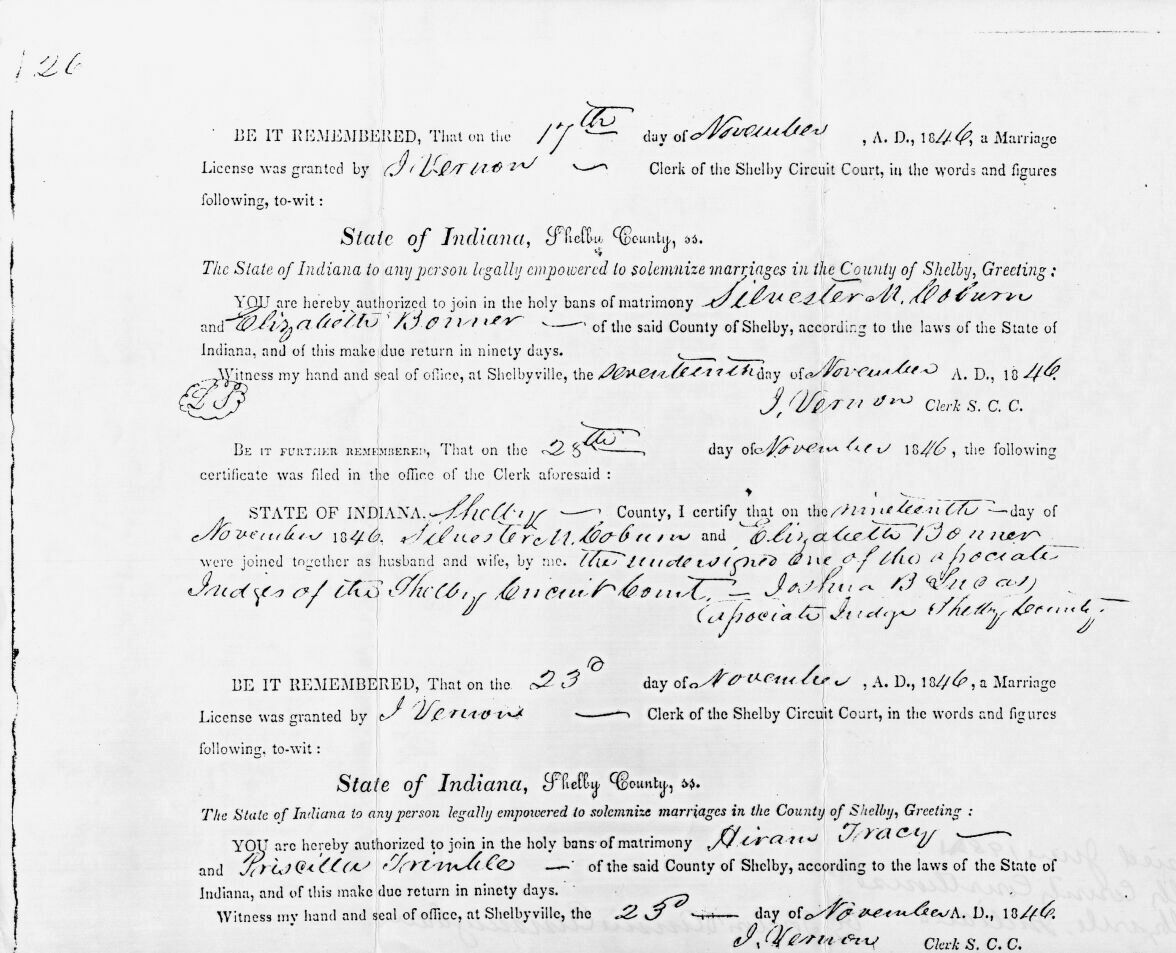 126
BE IT REMEMBERED, That on the 17th day of November, A. D., 1846, a Marriage
License was granted by J. Vernon — Clerk of the Shelby Circuit Court, in the words and figures
following, to-wit:
State of Indiana, Shelby County, ss.
The State of Indiana to any person legally empowered to solemnize marriages in the County of Shelby, Greeting:
YOU are hereby authorized to join in the holy bans of matrimony Silvester M. Coburn
and Elizabeth Bonner — of the said County of Shelby, according to the laws of the State of
Indiana, and of this make due return in ninety days.
Witness my hand and seal of office, at Shelbyville, the seventeenth day of November A. D., 1846.
J. Vernon Clerk S. C. C.
BE IT FURTHER REMEMBERED, That on the 28th day of November 1846, the following
certificate was filed in the office of the Clerk aforesaid:
STATE OF INDIANA. Shelby — County, I certify that on the nineteenth — day of
November 1846. Silvester M. Coburn and Elizabeth Bonner
were joined together as husband and wife, by me. the undersigned one of the associate
Judges of the Shelby Circuit Court. — Joshua B Lucas
Associate Judge Shelby County
BE IT REMEMBERED, That on the 23d day of November, A. D., 1846, a Marriage
License was granted by J Vernon — Clerk of the Shelby Circuit Court, in the words and figures
following, to-wit:
State of Indiana, Shelby County, ss.
The State of Indiana to any person legally empowered to solemnize marriages in the County of Shelby, Greeting:
YOU are hereby authorized to join in the holy bans of matrimony Hiram Tracy —
and Priscilla Trimble — of the said County of Shelby, according to the laws of the State of
Indiana, and of this make due return in ninety days.
Witness my hand and seal of office, at Shelbyville, the 23d — day of November A. D., 1846.
J. Vernon Clerk S. C. C.